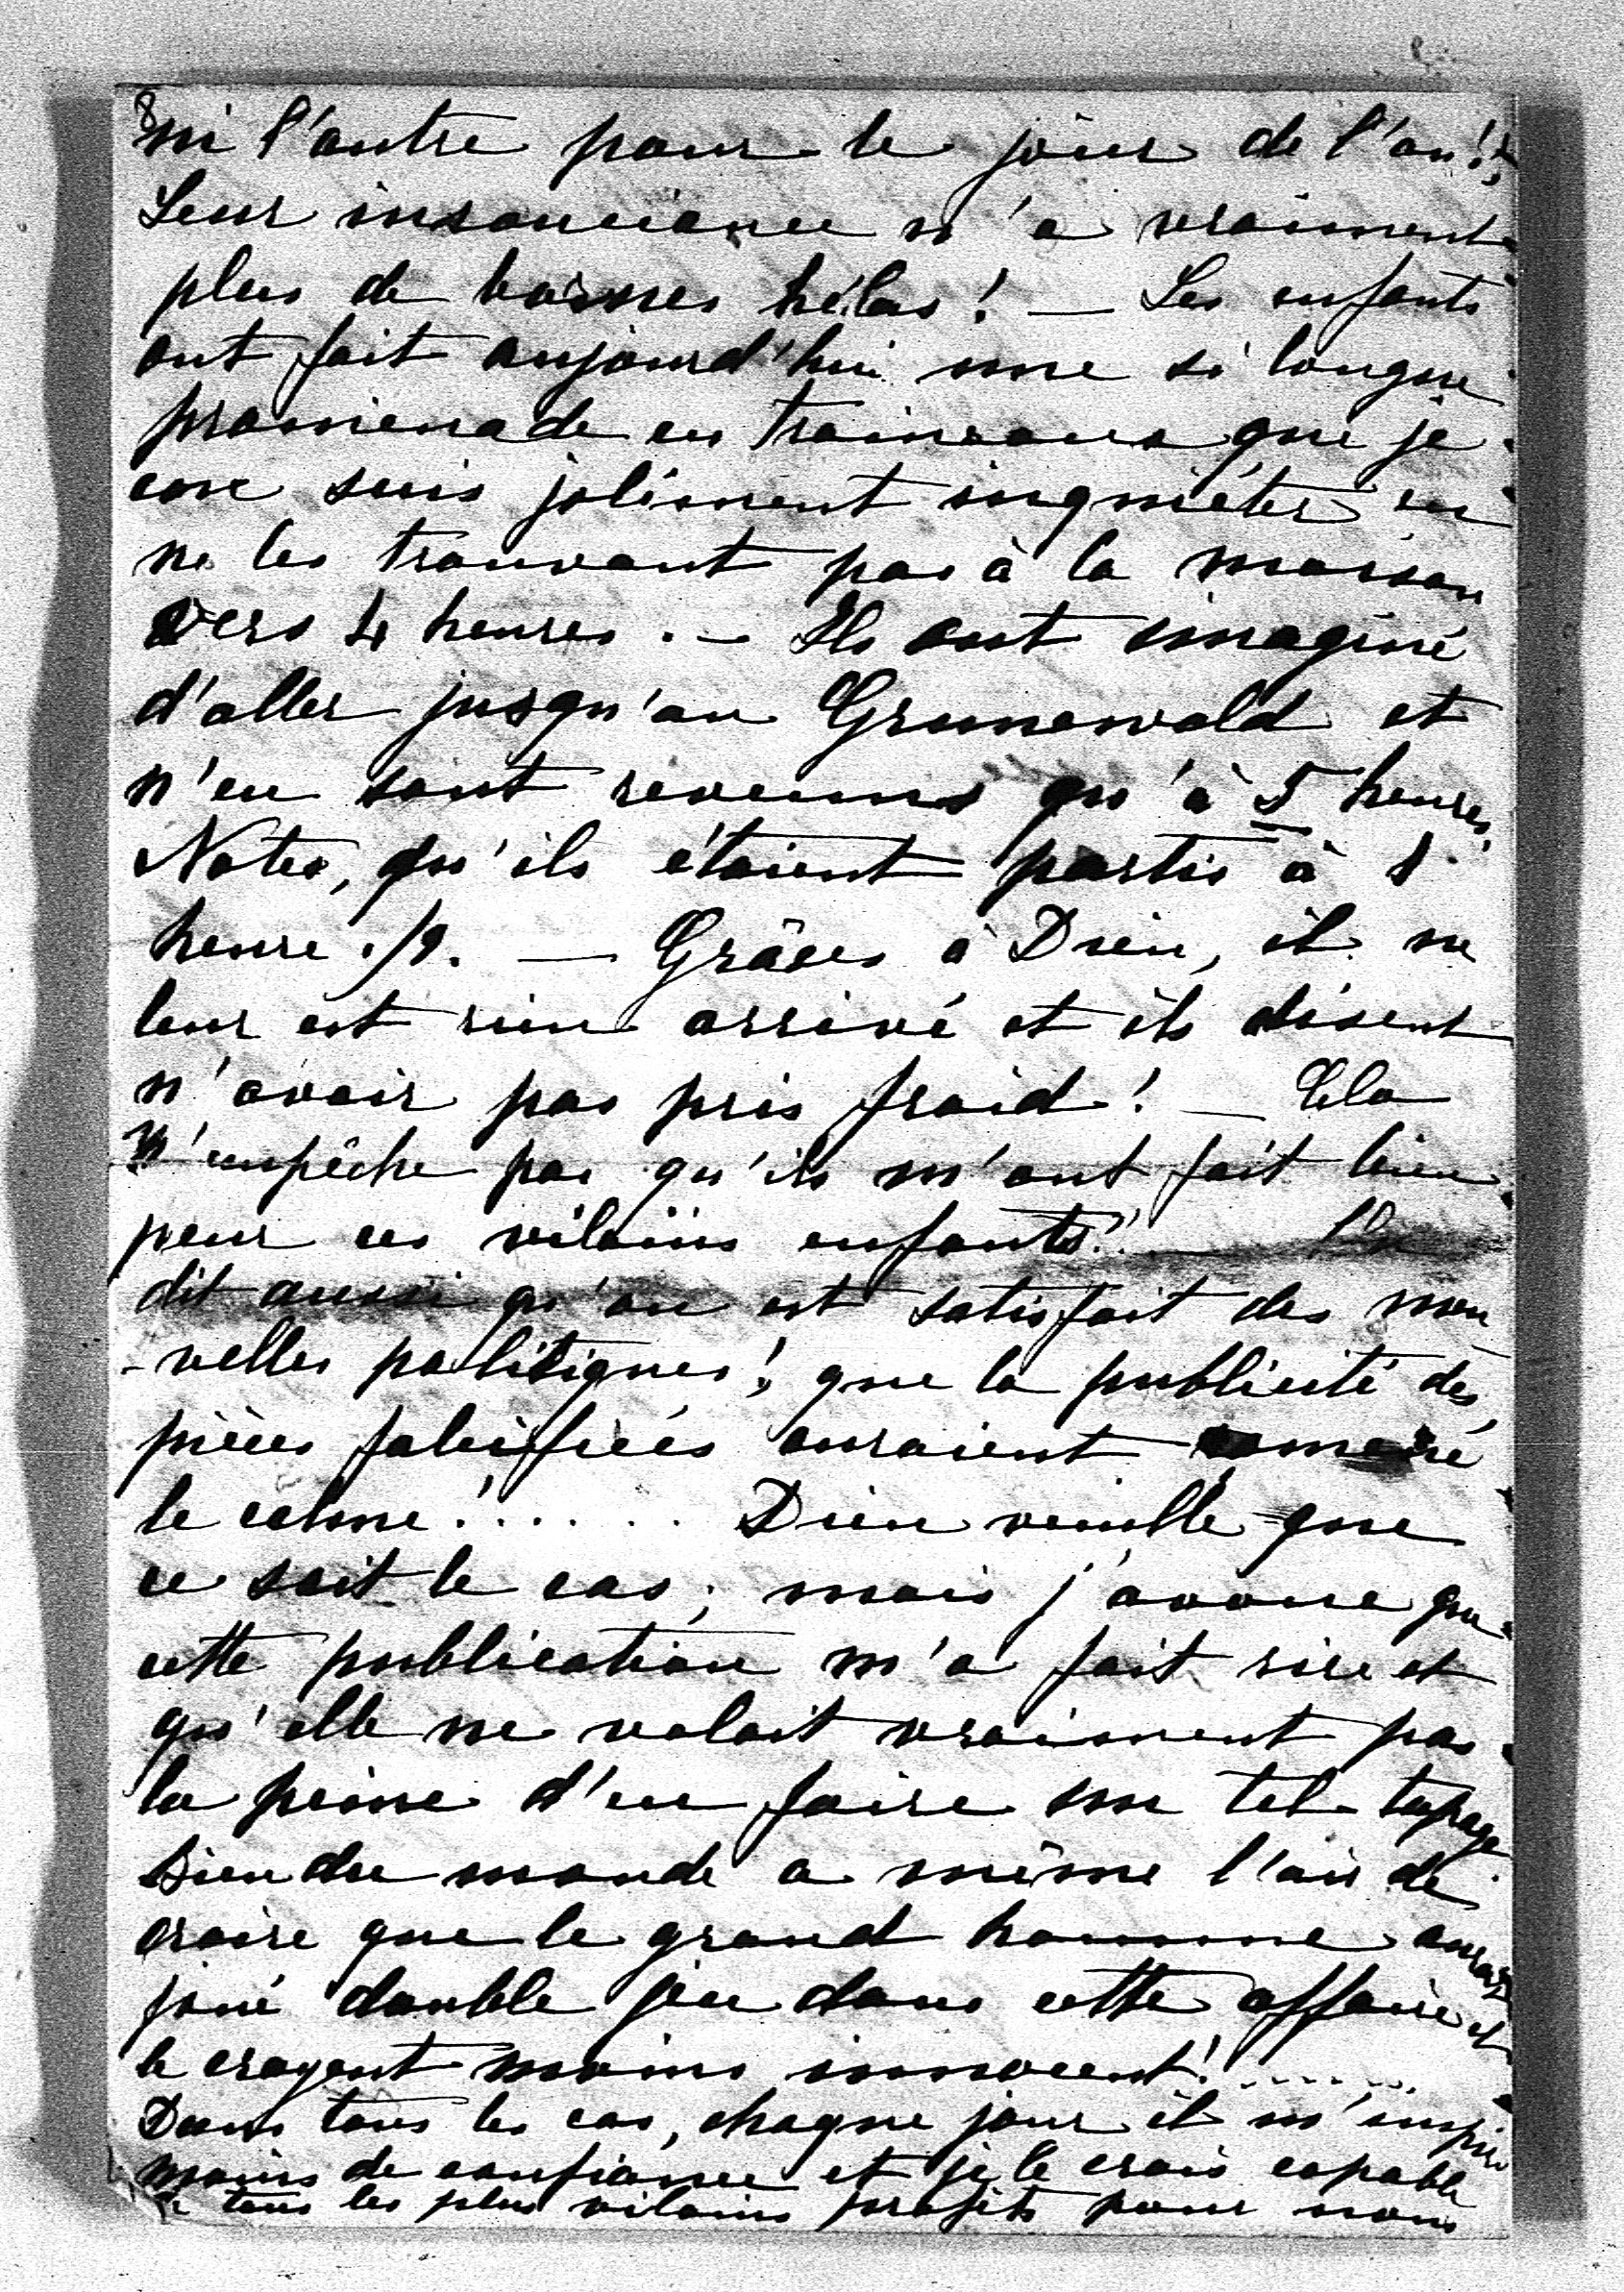 8
ni l'autre pour le jour de l'an!;
Leur insouciance n'a vraiment
plus de bornes hélas! — Les enfants
ont fait aujourd'hui une si longue
promenade en traineaux que je
suis joliment inquiéter en
ne les trouvant pas à la maison
vers 4 heures. — Ils ont imaginé
d'aller jusqu'au Grunewald et
n'en sont revenus qu'à 5 heures,
Notes, qu'ils étaient partis à 1
heure 1/2. — Grâces à Dieu, il ne
leur est rien arrivé et ils disent
n'avoir pas pris froid! — Cela
n'empêche pas qu'ils m'ont fait bien
peur ces vilains enfants!! —
dit aussi qu'on est satisfait des nou
-velles politiques! que la publicité des
pièces falsifiées auraient ramené
le calme!...... Dieu veuille que
ce soit le cas; mais j'avoue que
cette publication m'a fait rire et
qu'elle ne valait vraiment pas
la peine d'en faire un tel tapage
Bien du monde a même l'air de
croire que le grand homme aurait
joué double jeu dans cette affaire et
le croyent moins innocent!......
Dans tous les cas, chaque jour il m'inspire
moins de confiance et je le crois capable
de tous les plus vilains projets pour nous